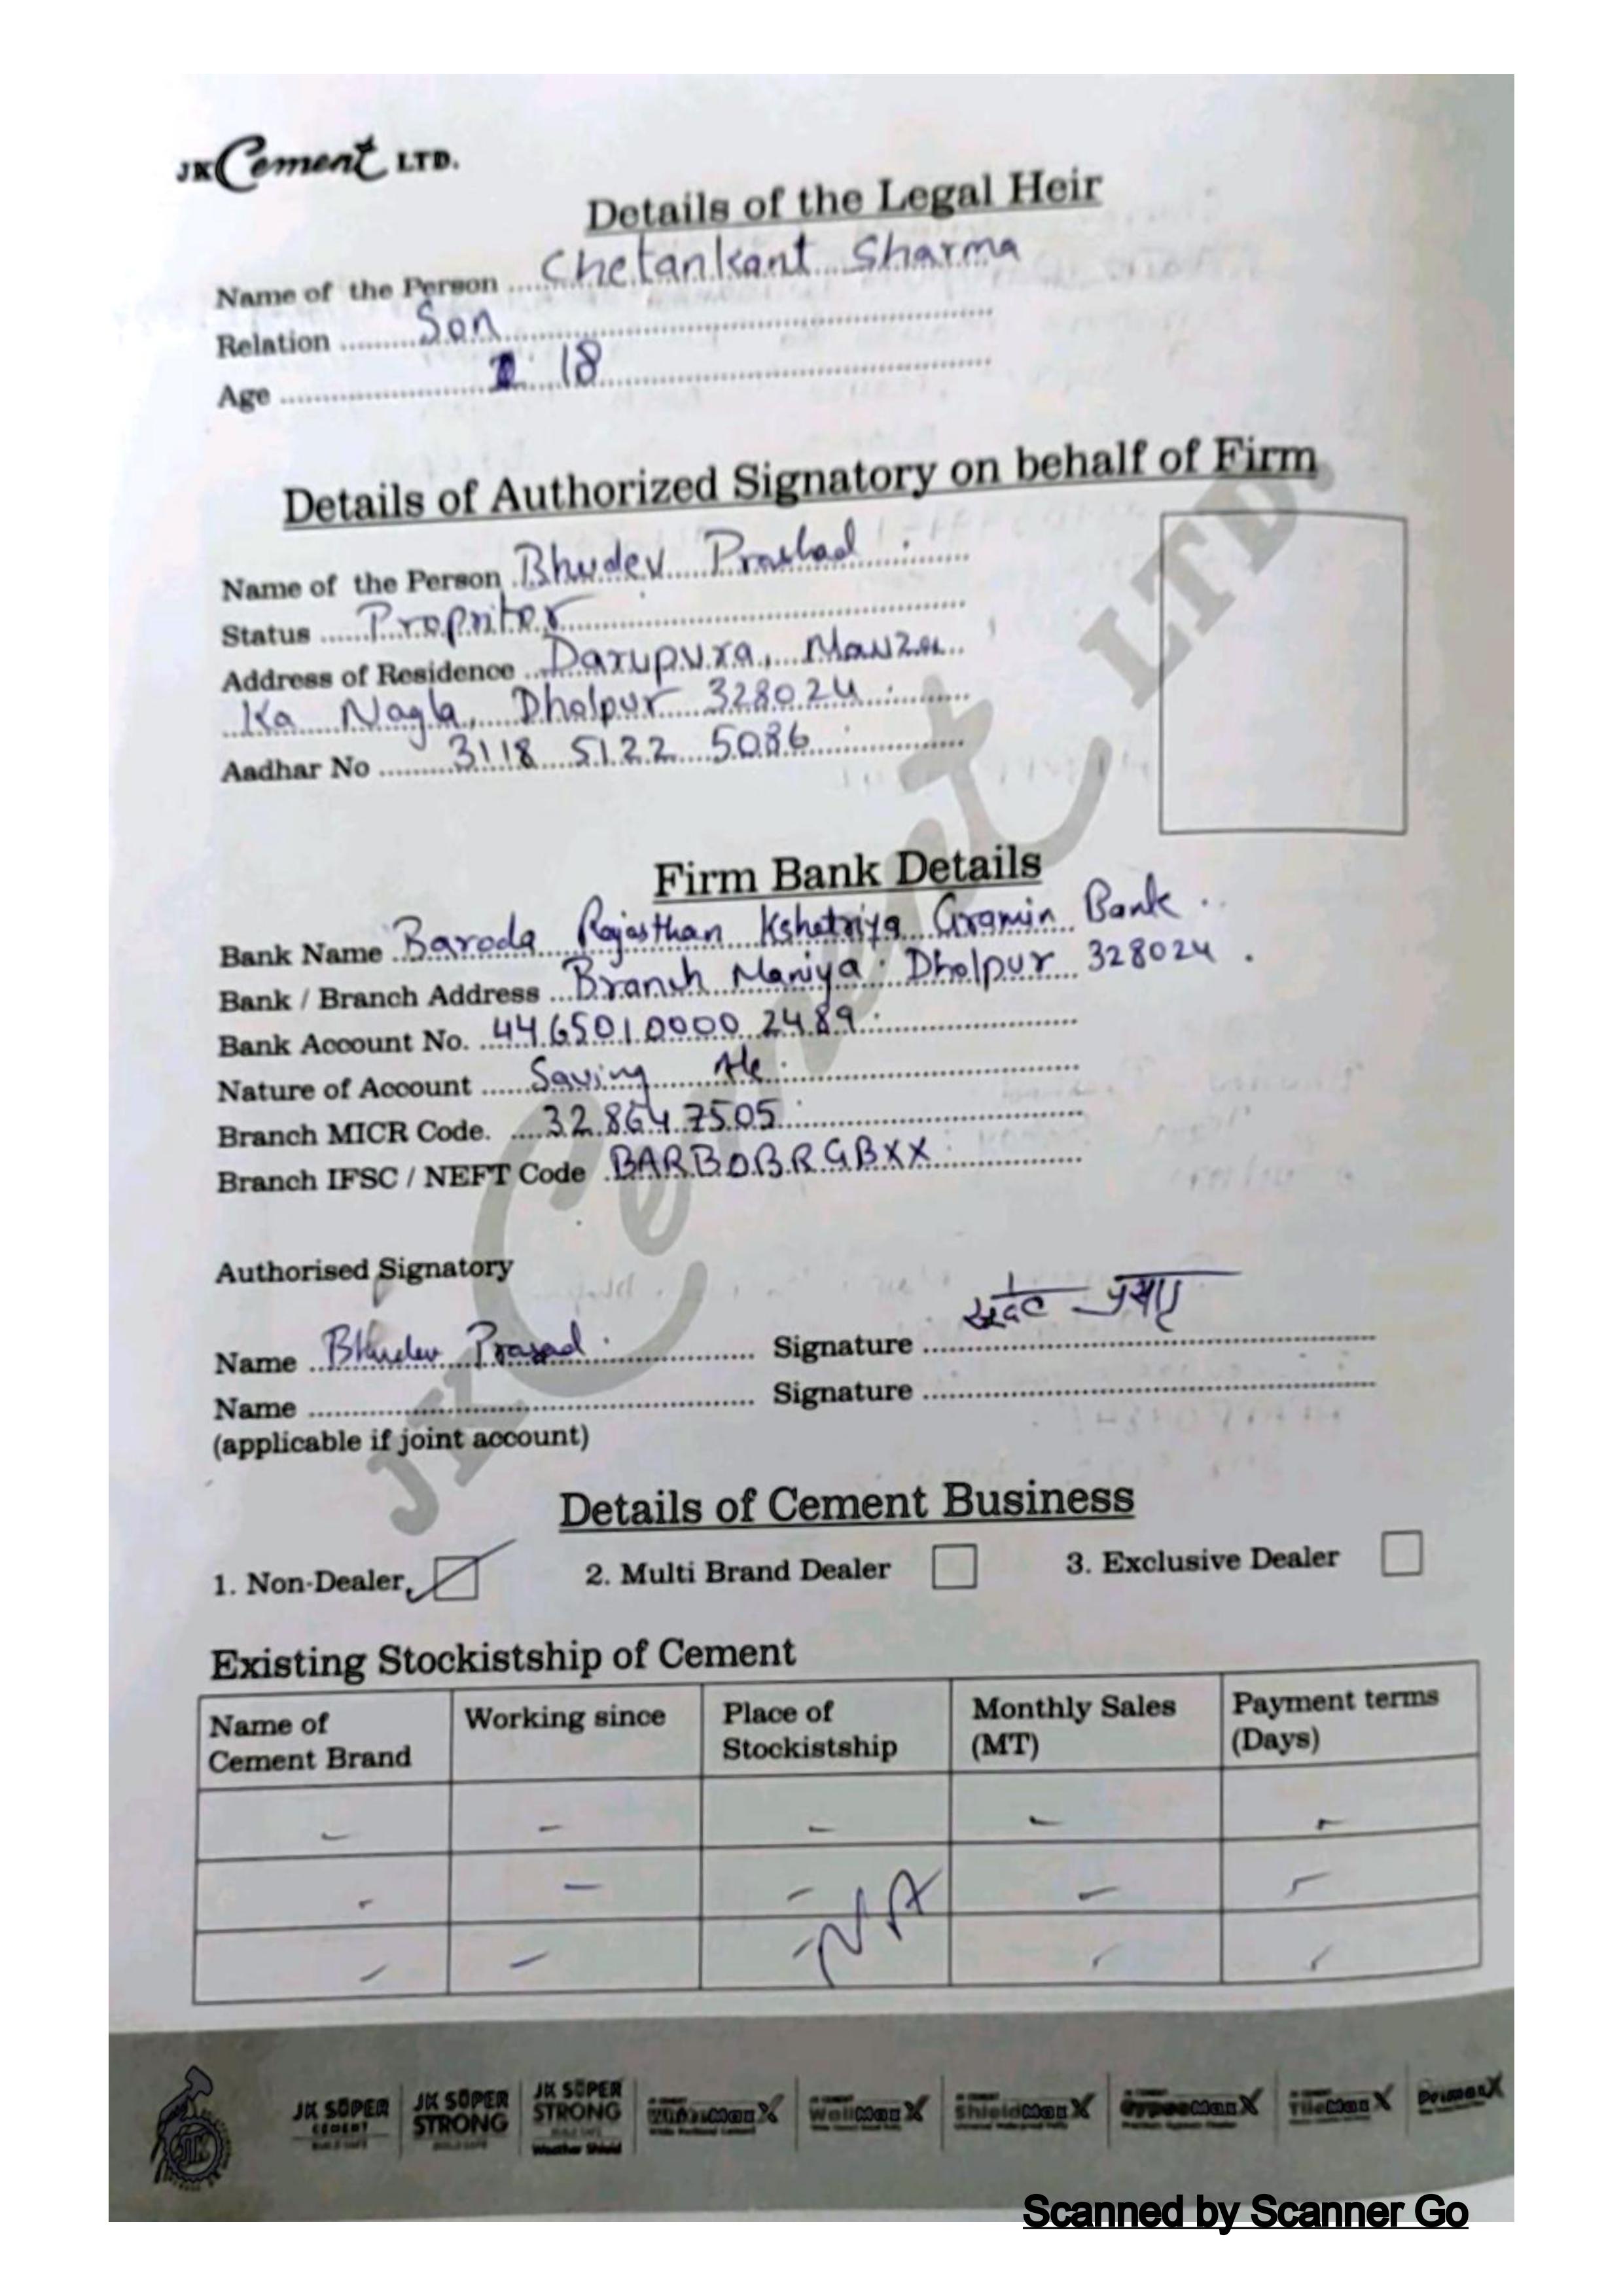 JK Cement LTD.
Details of the Legal Heir
Name of the Person Chetankant Sharma
Relation Son
Age 18
Details of Authorized Signatory on behalf of Firm
Name of the Person Bhudev Prashad
Status Propritor
Address of Residence Darupura, Mauza
Ka Nagla, Dholpur 328024
Aadhar No 3118 5122 5086
Firm Bank Details
Bank Name Baroda Rajasthan Kshetriya Gramin Bank
Bank / Branch Address Branch Maniya Dholpur 328024
Bank Account No. 44650100002489
Nature of Account Saving A/c
Branch MICR Code. 328647505
Branch IFSC / NEFT Code BARB0BRGBXX
Authorised Signatory
Name Bhudev Prasad Signature
Name Signature
(applicable if joint account)
Details of Cement Business
1. Non-Dealer 2. Multi Brand Dealer 3. Exclusive Dealer
Existing Stockistship of Cement
Name of Cement Brand Working since Place of Stockistship Monthly Sales (MT) Payment terms (Days)
- - - - -
- - - - -
- - - - -
NA
JK Cement LTD.
JK SUPER CEMENT BUILD SAFE JK SUPER STRONG BUILD SAFE JK SUPER STRONG BUILD SAFE Weather Shield WhiteMaxX WallMaxX ShieldMaxX GypsoMaxX TileMaxX PrimaxX
JK
Scanned by Scanner Go